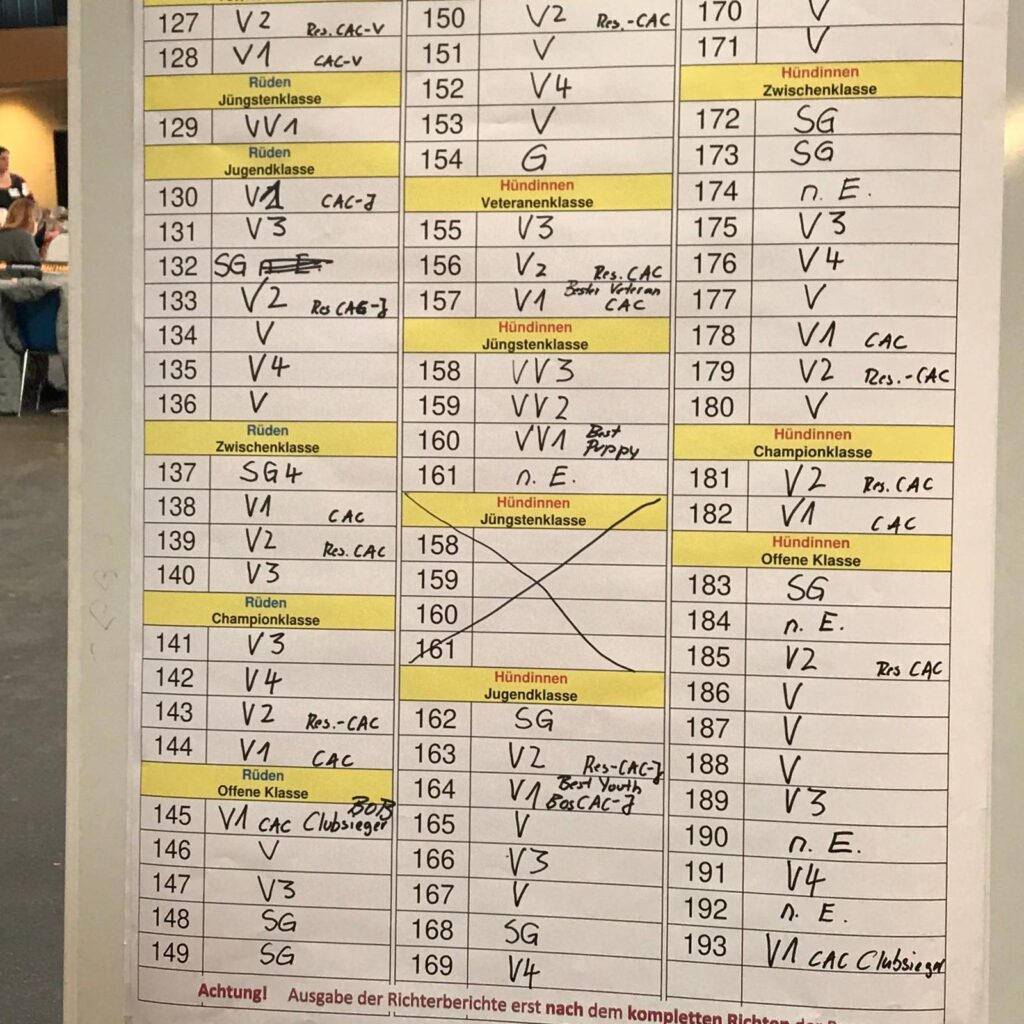 127 V2 Res. CAC-V
128 V1 CAC-V
Rüden
Jüngstenklasse
129 VV1
Rüden
Jugendklasse
130 V1 CAC-J
131 V3
132 SG
133 V2 Res CAC-J
134 V
135 V4
136 V
Rüden
Zwischenklasse
137 SG4
138 V1 CAC
139 V2 Res. CAC
140 V3
Rüden
Championklasse
141 V3
142 V4
143 V2 Res.-CAC
144 V1 CAC
Rüden
Offene Klasse
BOB
145 V1 CAC Clubsieger
146 V
147 V3
148 SG
149 SG
150 V2 Res.-CAC
151 V
152 V4
153 V
154 G
Hündinnen
Veteranenklasse
155 V3
156 V2 Res. CAC
157 V1 Bester Veteran
CAC
Hündinnen
Jüngstenklasse
158 VV3
159 VV2
160 VV1 Best
Puppy
161 n. E.
Hündinnen
Jüngstenklasse
158
159
160
161
Hündinnen
Jugendklasse
162 SG
163 V2 Res-CAC-J
164 V1 Best Youth
Bos CAC-J
165 V
166 V3
167 V
168 SG
169 V4
170 V
171 V
Hündinnen
Zwischenklasse
172 SG
173 SG
174 n. E.
175 V3
176 V4
177 V
178 V1 CAC
179 V2 Res.-CAC
180 V
Hündinnen
Championklasse
181 V2 Res. CAC
182 V1 CAC
Hündinnen
Offene Klasse
183 SG
184 n. E.
185 V2 Res CAC
186 V
187 V
188 V
189 V3
190 n. E.
191 V4
192 n. E.
193 V1 CAC Clubsieger
Achtung! Ausgabe der Richterberichte erst nach dem kompletten Richten der